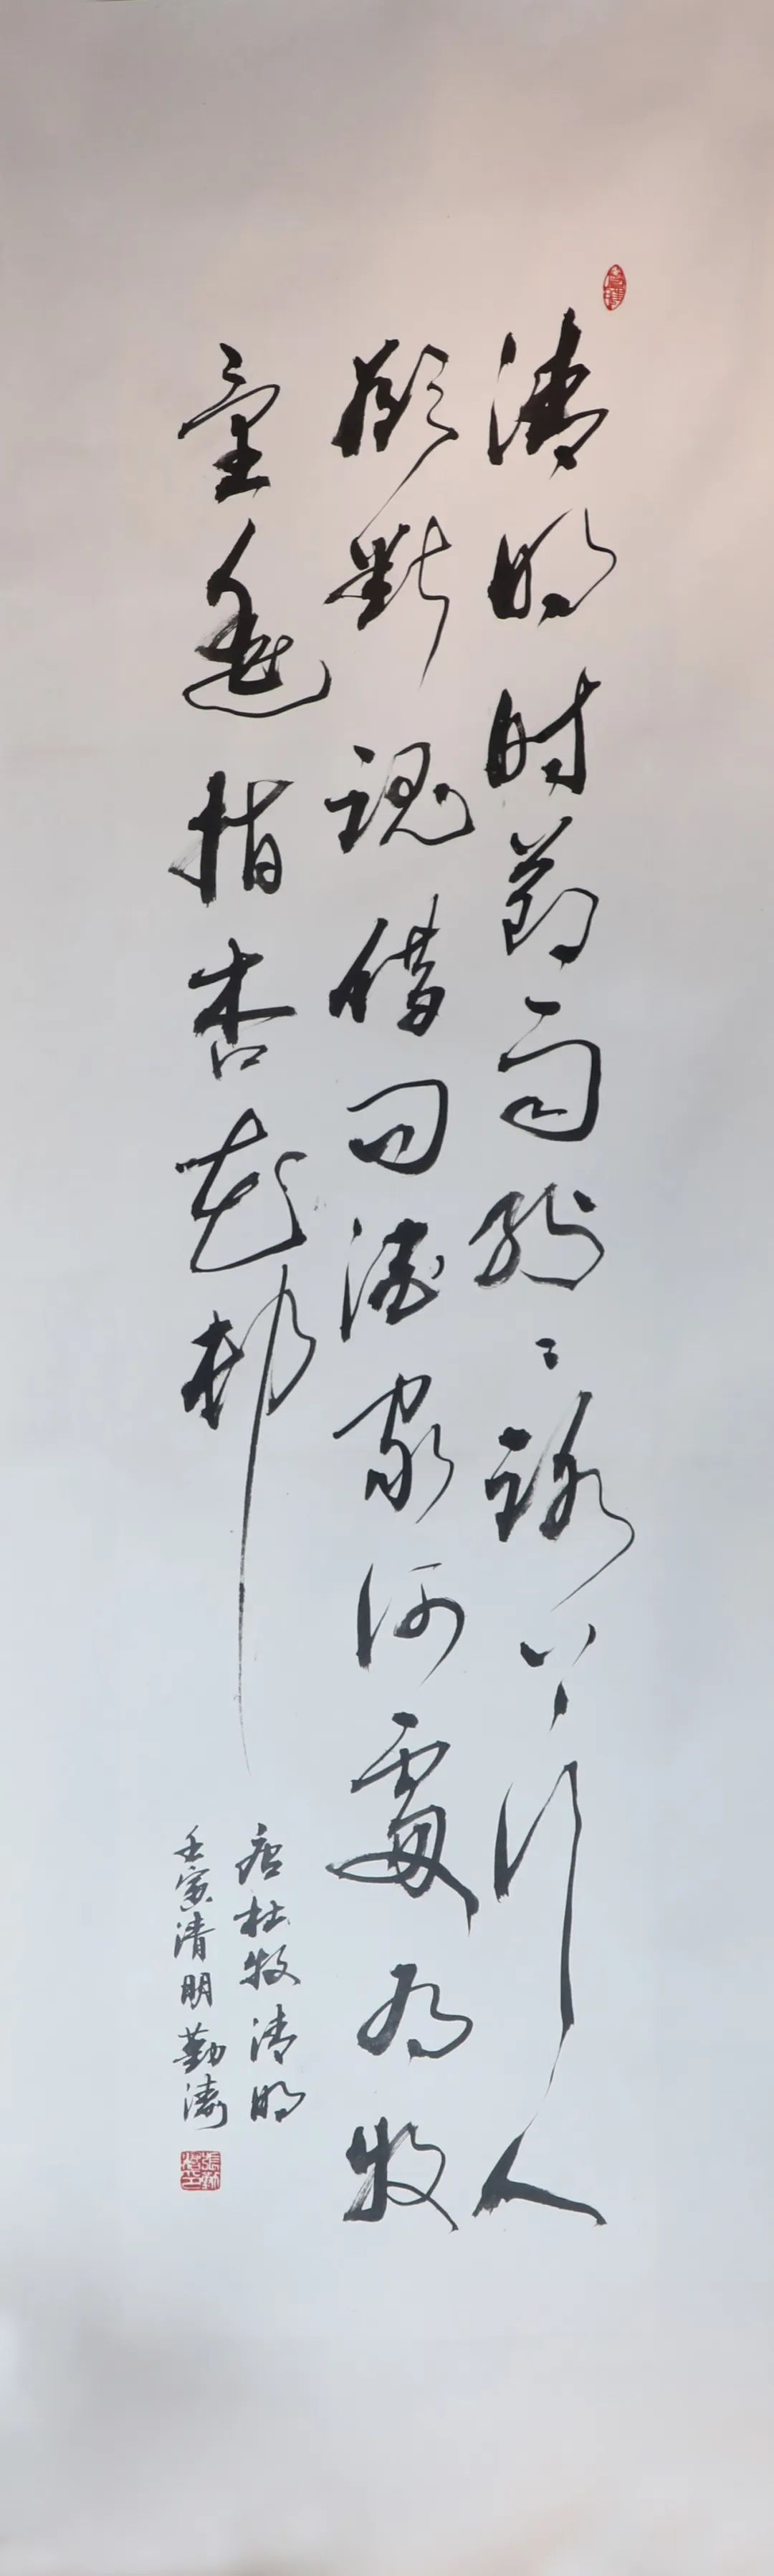 清明时節雨纷纷路上行人
欲斷魂借问酒家何處有牧
童遥指杏花村
唐杜牧清明
壬寅清明勤濤